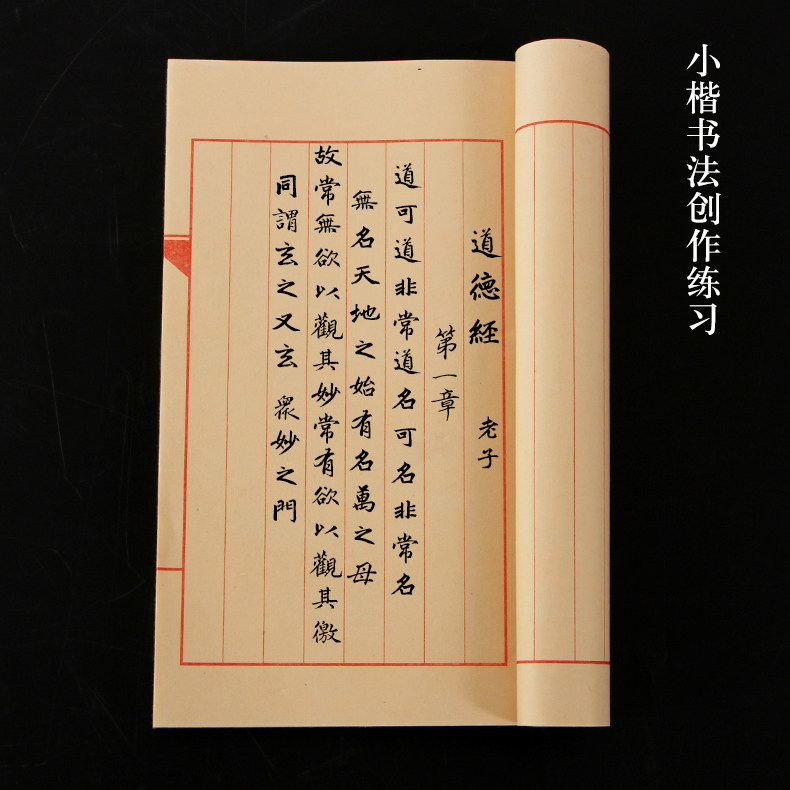 小楷书法创作练习
道德經 老子
第一章
道可道非常道名可名非常名
無名天地之始有名萬之母
故常無欲以觀其妙常有欲以觀其徼
同謂玄之又玄 衆妙之門